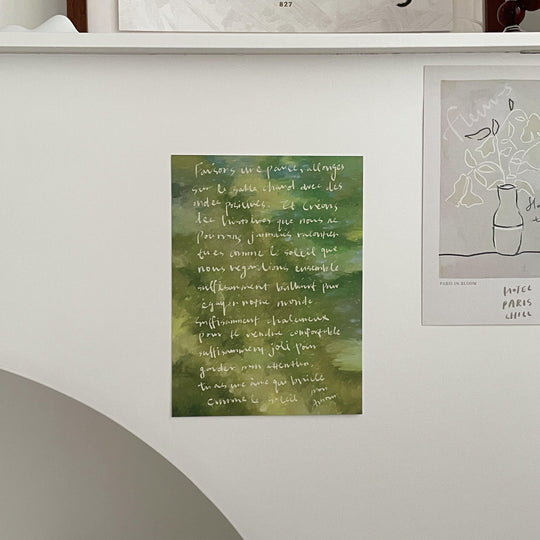 827
Faisons une pause, allongés
sur le sable chaud avec des
idées précieuses. Et créons
des histoires que nous ne
pourrons jamais raconter
tu es comme le soleil que
nous regardions ensemble
suffisamment brillant pour
égayer notre monde
suffisamment chaleureux
pour te rendre comfortable
suffisamment joli pour
garder mon attention.
tu as une âme qui brille
comme le soleil mon
amour
fleurs
PARIS IN BLOOM
HOTEL
PARIS
CHILL